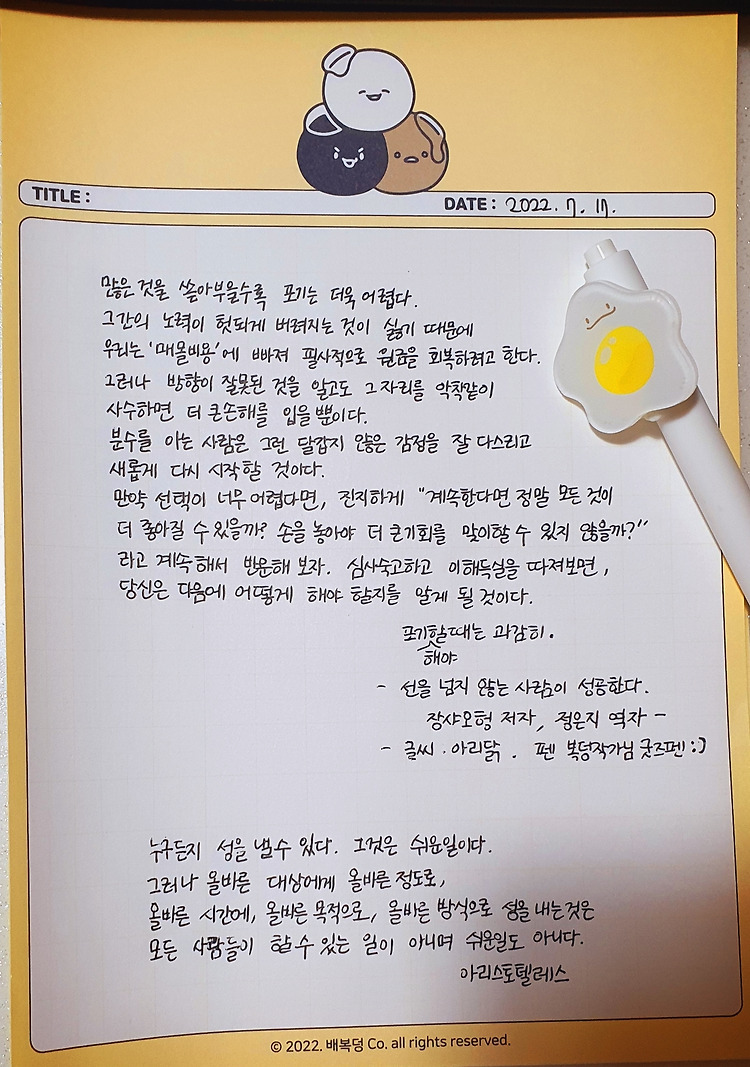 TITLE :
DATE : 2022. 7. 17.
많은 것을 쏟아부을수록 포기는 더욱 어렵다.
그간의 노력이 헛되게 버려지는 것이 싫기 때문에
우리는 '매몰비용'에 빠져 필사적으로 원금을 회복하려고 한다.
그러나 방향이 잘못된 것을 알고도 그 자리를 악착같이
사수하면 더 큰손해를 입을 뿐이다.
분수를 아는 사람은 그런 달갑지 않은 감정을 잘 다스리고
새롭게 다시 시작할 것이다.
만약 선택이 너무 어렵다면, 진지하게 "계속한다면 정말 모든 것이
더 좋아질 수 있을까? 손을 놓아야 더 큰기회를 맞이할 수 있지 않을까?"
라고 계속해서 반문해 보자. 심사숙고하고 이해득실을 따져보면,
당신은 다음에 어떻게 해야 할지를 알게 될 것이다.
포기할때는 과감히.
해야
- 선을 넘지 않는 사람이 성공한다.
장샤오헝 저자, 정은지 역자 -
- 글씨 · 아리닭 . 펜 복덩작가님 굿즈펜 :)
누구든지 성을 낼 수 있다. 그것은 쉬운일이다.
그러나 올바른 대상에게 올바른 정도로,
올바른 시간에, 올바른 목적으로, 올바른 방식으로 성을 내는것은
모든 사람들이 할 수 있는 일이 아니며 쉬운일도 아니다.
아리스토텔레스
© 2022. 배복덩 Co. all rights reserved.